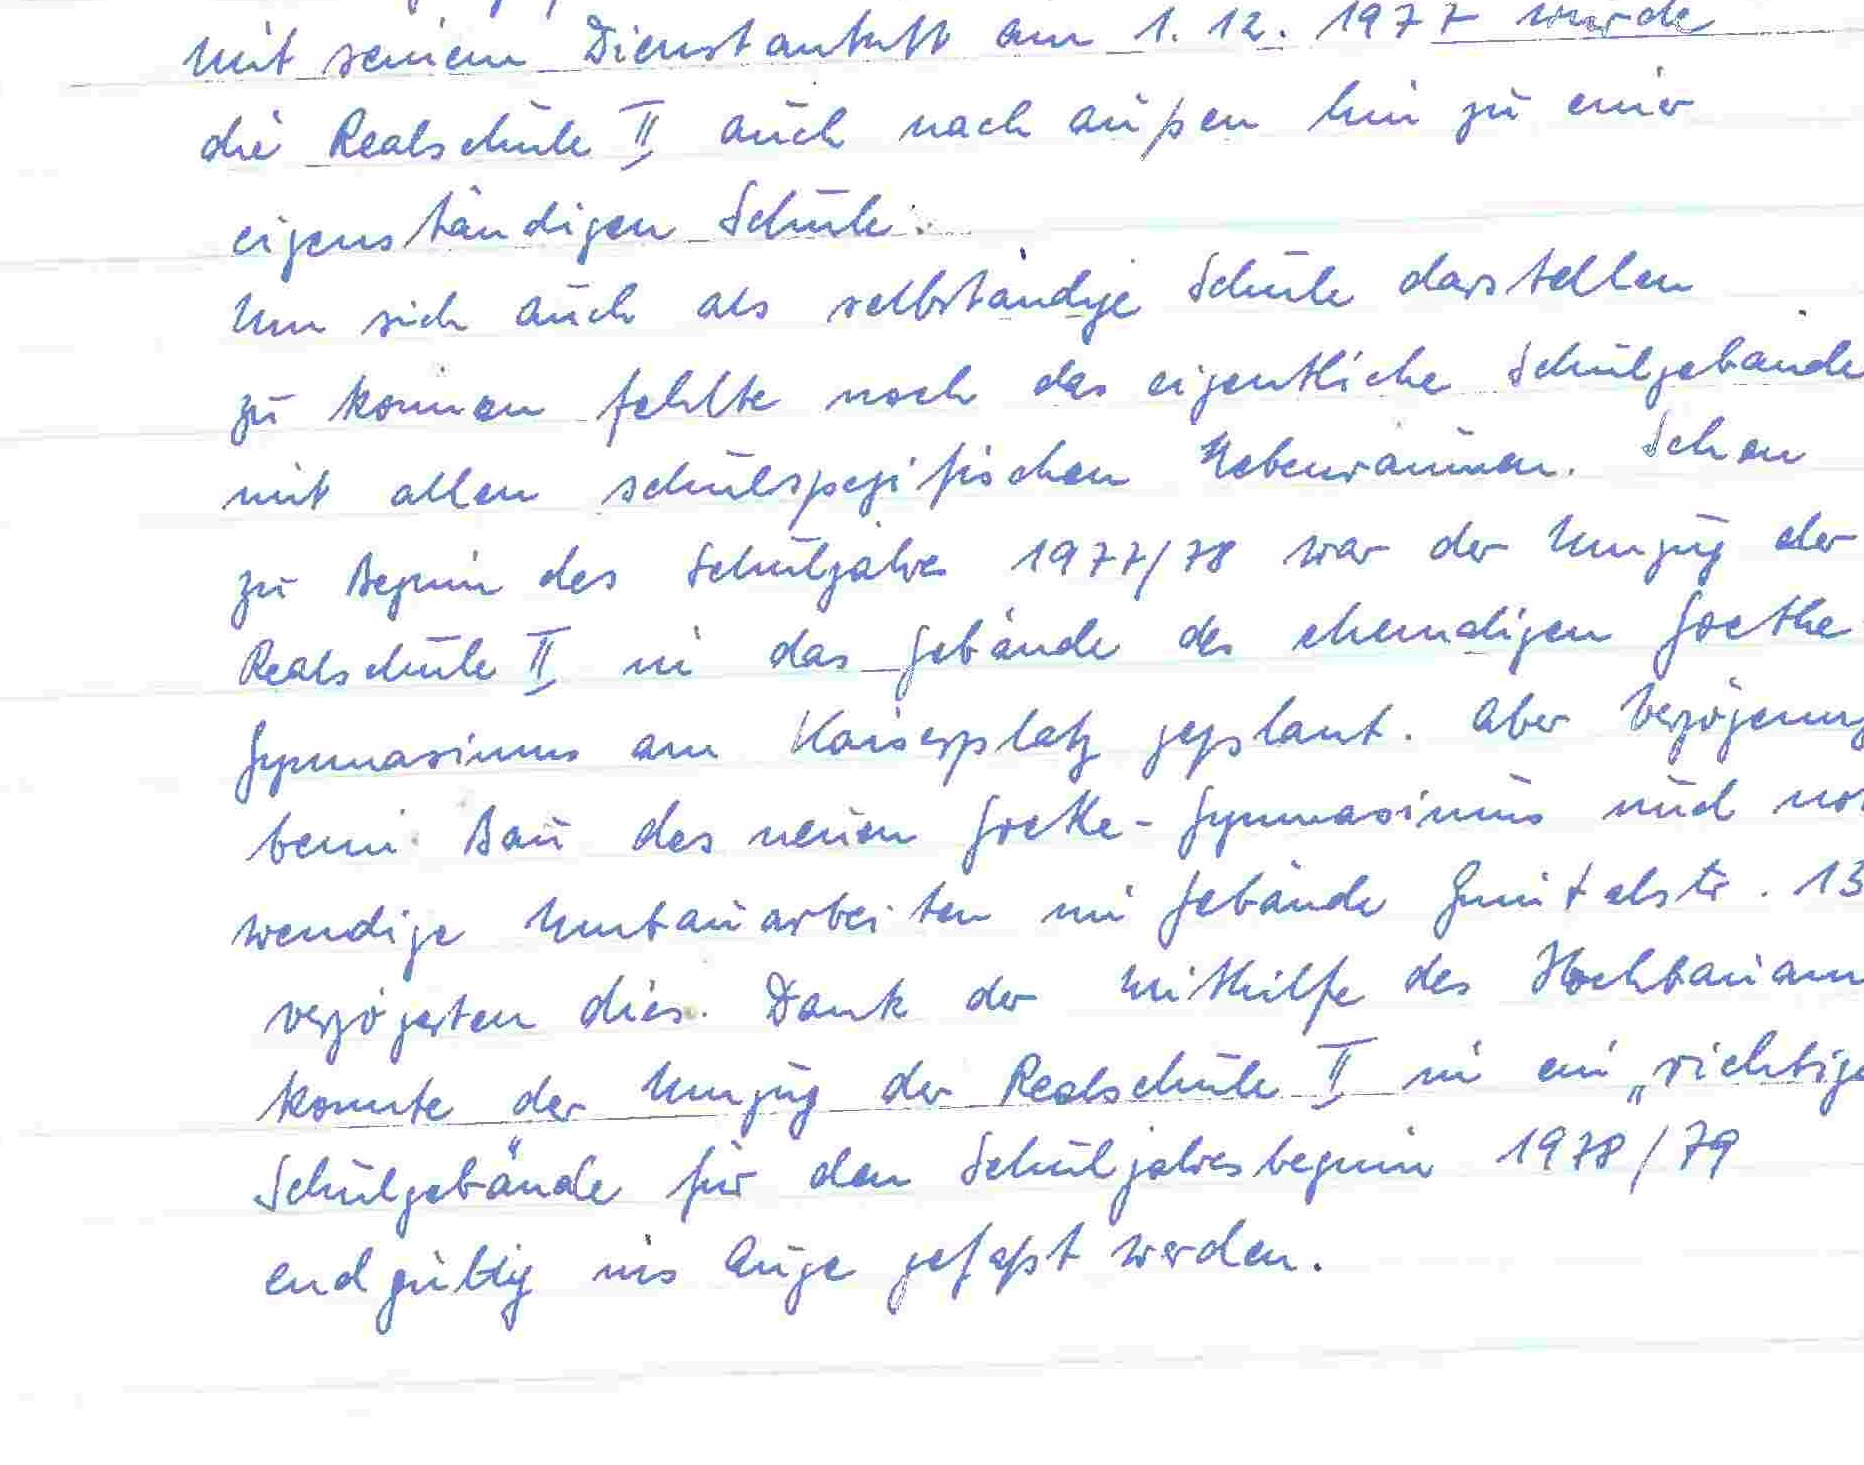 Mit seinem Dienstantritt am 1.12.1977 wurde
die Realschule II auch nach außen hin zu einer
eigenständigen Schule.
Um sich auch als selbständige Schule darstellen
zu können fehlte noch das eigentliche Schulgebäude
mit allen schulspezifischen Nebenräumen. Schon
zu Beginn des Schuljahres 1977/78 war der Umzug der
Realschule II in das Gebäude des ehemaligen Goethe
Gymnasiums am Kaiserplatz geplant. Aber Verzögerung
beim Bau des neuen Goethe-Gymnasiums und not
wendige Umbauarbeiten im Gebäude 13
verzögerten dies. Dank der Mithilfe des Hochbauam
konnte der Umzug der Realschule II in ein „richtige
Schulgebäude" für den Schuljahresbeginn 1978/79
endgültig ins Auge gefaßt werden.